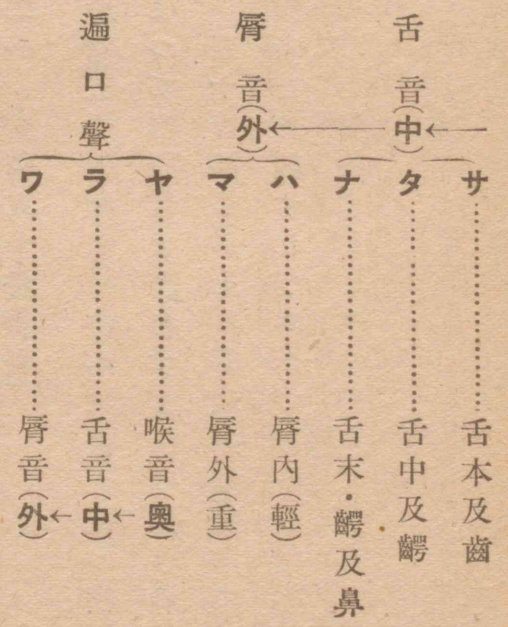 舌音(中)
サ……舌本及齒
タ……舌中及齶
ナ……舌末・齶及鼻
脣音(外)
ハ……脣內(輕)
マ……脣外(重)
遍口聲
ヤ……喉音(奧)
ラ……舌音(中)
ワ……脣音(外)